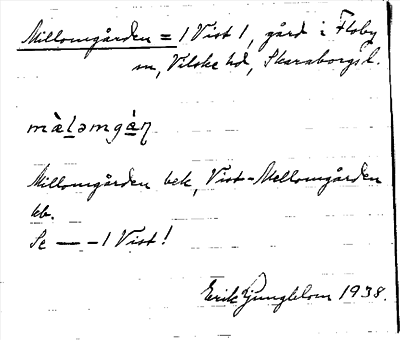 Millomgården = 1 Vist 1, gård i Floby
sn, Vilske hd, Skaraborgs l.
màl̲əmgà̲ɳ
Millomgården bek, Vist-Mellomgården
kb.
Se — – 1 Vist!
Erik Ljungblom 1938.